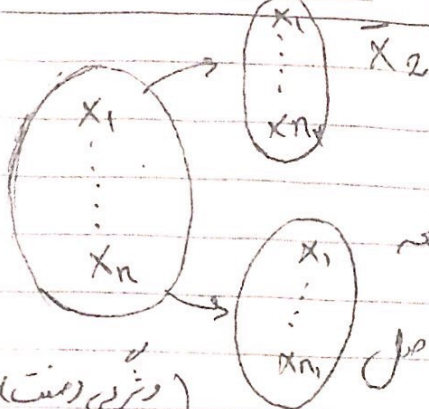 X₁
⋮
Xn₁
X̄ 2
X₁
⋮
Xn
X₁
⋮
Xn₁
صل
(ویژگی وصفت)